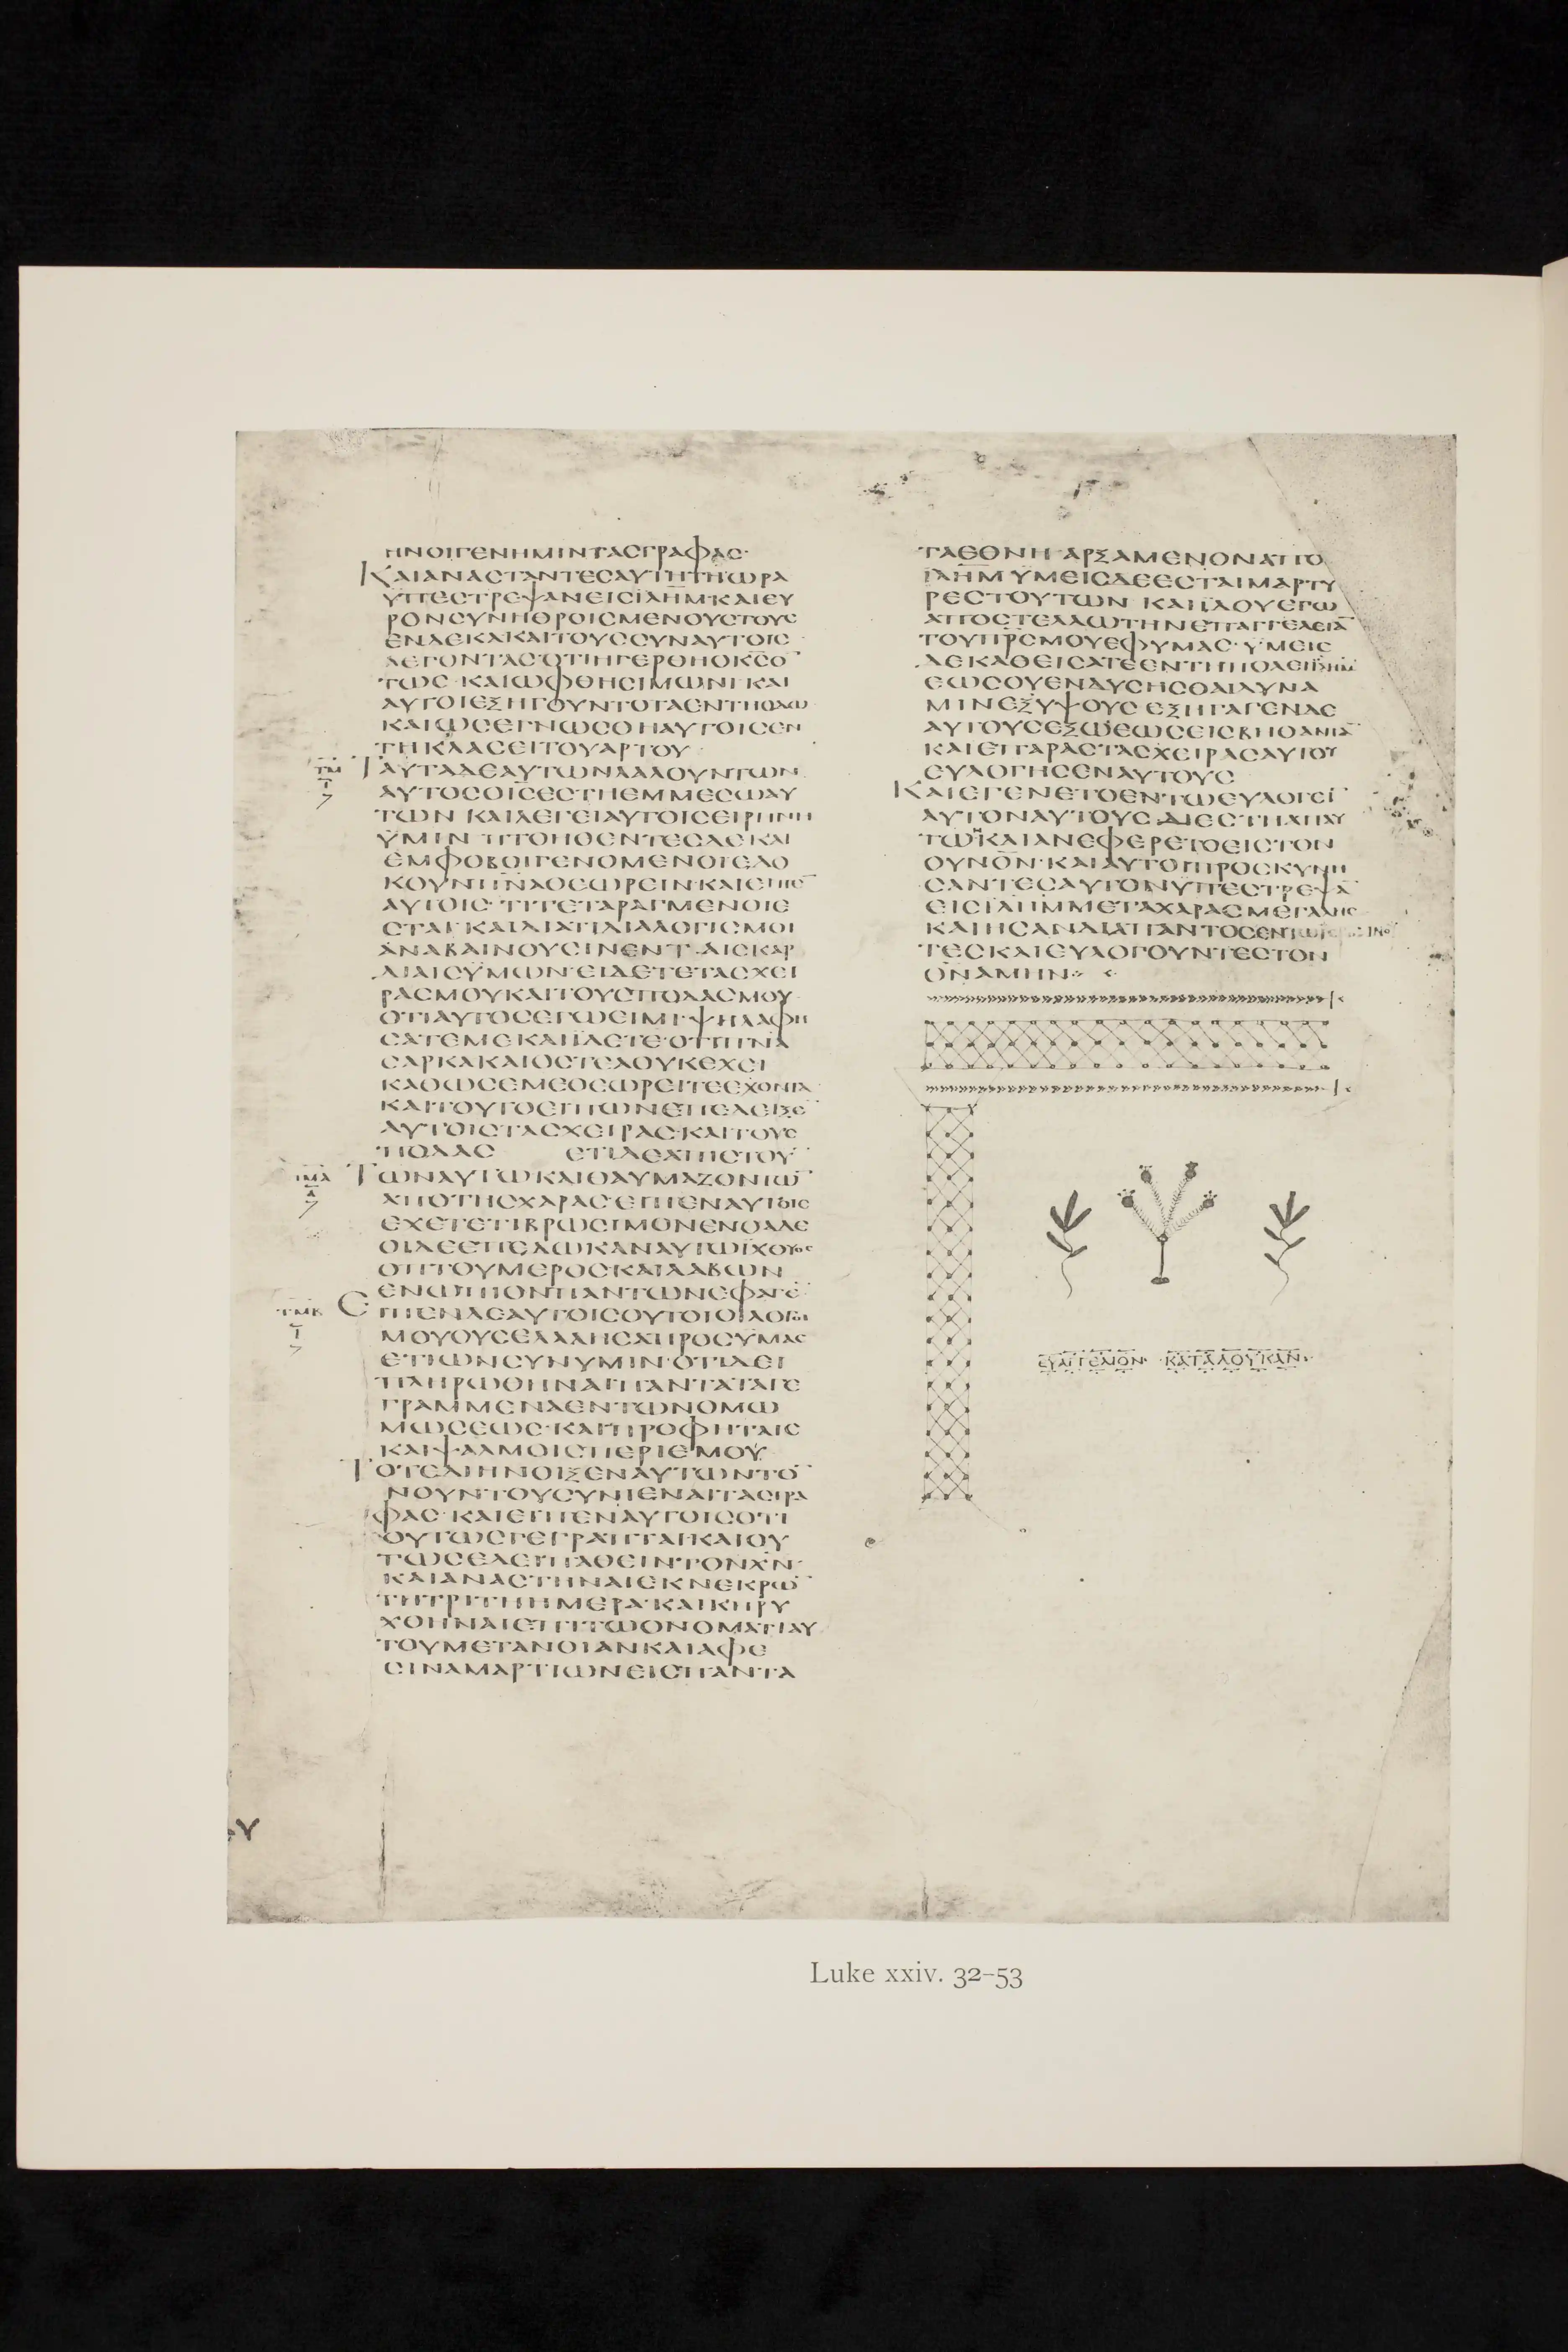 ΗΝΟΙΓΕΝΗΜΙΝΤΑϹΓΡΑΦΑϹ·
ΚΑΙΑΝΑϹΤΑΝΤΕϹΑΥΤΗΤΗΩΡΑ
ΥΠΕϹΤΡΕΨΑΝΕΙϹΙΛΗΜ·ΚΑΙΕΥ
ΡΟΝϹΥΝΗΘΡΟΙϹΜΕΝΟΥϹΤΟΥϹ
ΕΝΔΕΚΑΚΑΙΤΟΥϹϹΥΝΑΥΤΟΙϹ
ΛΕΓΟΝΤΑϹΟΤΙΗΓΕΡΘΗΟΚ̅Ϲ̅Ο̅
ΤΩϹ·ΚΑΙΩΦΘΗϹΙΜΩΝΙ·ΚΑΙ
ΑΥΤΟΙΕΞΗΓΟΥΝΤΟΤΑΕΝΤΗΟΔΩ
ΚΑΙΩϹΕΓΝΩϹΘΗΑΥΤΟΙϹΕΝ
ΤΗΚΛΑϹΕΙΤΟΥΑΡΤΟΥ·
ΤΜ ΤΑΥΤΑΔΕΑΥΤΩΝΛΑΛΟΥΝΤΩΝ
ΑΥΤΟϹΟΙ̅Ϲ̅ΕϹΤΗΕΜΜΕϹΩΑΥ
ΤΩΝ ΚΑΙΛΕΓΕΙΑΥΤΟΙϹΕΙΡΗΝΗ
ΫΜΙΝ ΠΤΟΗΘΕΝΤΕϹΔΕΚΑΙ
ΕΜΦΟΒΟΙΓΕΝΟΜΕΝΟΙΕΔΟ
ΚΟΥΝΠ̅Ν̅Α̅ΘΕΩΡΕΙΝ·ΚΑΙΕΙΠΕ̅
ΑΥΤΟΙϹ·ΤΙΤΕΤΑΡΑΓΜΕΝΟΙΕ
ϹΤΑΙ·ΚΑΙΔΙΑΤΙΔΙΑΛΟΓΙϹΜΟΙ
ΑΝΑΒΑΙΝΟΥϹΙΝΕΝΤΑΙϹΚΑΡ
ΔΙΑΙϹΫΜΩΝ·ΕΙΔΕΤΕΤΑϹΧΕΙ
ΡΑϹΜΟΥΚΑΙΤΟΥϹΠΟΔΑϹΜΟΥ
ΟΤΙΑΥΤΟϹΕΓΩΕΙΜΙ·ΨΗΛΑΦΗ
ϹΑΤΕΜΕΚΑΙΪΔΕΤΕ·ΟΤΙΠ̅Ν̅Α̅
ϹΑΡΚΑΚΑΙΟϹΤΕΑΟΥΚΕΧΕΙ
ΚΑΘΩϹΕΜΕΘΕΩΡΕΙΤΕΕΧΟΝΤΑ
ΚΑΙΤΟΥΤΟΕΙΠΩΝΕΠΕΔΕΙΞΕ̅
ΑΥΤΟΙϹΤΑϹΧΕΙΡΑϹ·ΚΑΙΤΟΥϹ
ΠΟΔΑϹ ΕΤΙΔΕΑΠΙϹΤΟΥ̅
ΤΜΑ ΤΩΝΑΥΤΩΚΑΙΘΑΥΜΑΖΟΝΤΩ̅
ΑΠΟΤΗϹΧΑΡΑϹ·ΕΙΠΕΝΑΥΤΟΙϹ
ΕΧΕΤΕΤΙΒΡΩϹΙΜΟΝΕΝΘΑΔΕ
ΟΙΔΕΕΠΕΔΩΚΑΝΑΥΤΩΪΧΘΥΟϹ
ΟΠΤΟΥΜΕΡΟϹΚΑΙΛΑΒΩΝ
ΕΝΩΠΙΟΝΠΑΝΤΩΝΕΦΑΓΕ̅
ΤΜΒ ΕΙΠΕΝΔΕΑΥΤΟΙϹΟΥΤΟΙΟΙΛΟΓΟΙ
ΜΟΥΟΥϹΕΛΑΛΗϹΑΠΡΟϹΥΜΑϹ
ΕΤΙΩΝϹΥΝΥΜΙΝ·ΟΤΙΔΕΙ
ΠΛΗΡΩΘΗΝΑΙΠΑΝΤΑΤΑΓΕ
ΓΡΑΜΜΕΝΑΕΝΤΩΝΟΜΩ
ΜΩϹΕΩϹ·ΚΑΙΠΡΟΦΗΤΑΙϹ
ΚΑΙΨΑΛΜΟΙϹΠΕΡΙΕΜΟΥ
ΤΟΤΕΔΙΗΝΟΙΞΕΝΑΥΤΩΝΤΟ̅
ΝΟΥΝ·ΤΟΥϹΥΝΙΕΝΑΙΤΑϹΓΡΑ
ΦΑϹ·ΚΑΙΕΙΠΕΝΑΥΤΟΙϹΟΤΙ
ΟΥΤΩϹΓΕΓΡΑΠΤΑΙ·ΚΑΙΟΥ
ΤΩϹΕΔΕΙΠΑΘΕΙΝΤΟΝΧ̅Ν̅·
ΚΑΙΑΝΑϹΤΗΝΑΙΕΚΝΕΚΡΩ̅
ΤΗΤΡΙΤΗΗΜΕΡΑ·ΚΑΙΚΗΡΥ
ΧΘΗΝΑΙΕΠΙΤΩΟΝΟΜΑΤΙΑΥ
ΤΟΥΜΕΤΑΝΟΙΑΝΚΑΙΑΦΕ
ϹΙΝΑΜΑΡΤΙΩΝΕΙϹΠΑΝΤΑ
ΤΑΕΘΝΗ·ΑΡΞΑΜΕΝΟΝΑΠΟ
ΙΛΗΜ ΫΜΕΙϹΔΕΕϹΤΑΙΜΑΡΤΥ
ΡΕϹΤΟΥΤΩΝ ΚΑΙΪΔΟΥΕΓΩ
ΑΠΟϹΤΕΛΛΩΤΗΝΕΠΑΓΓΕΛΕΙΑ̅
ΤΟΥΠ̅Ρ̅Ϲ̅ΜΟΥΕΦΥΜΑϹ·ΫΜΕΙϹ
ΔΕΚΑΘΕΙϹΑΤΕΕΝΤΗΠΟΛΕΙΙΛΗΜ
ΕΩϹΟΥΕΝΔΥϹΗϹΘΑΙΔΥΝΑ
ΜΙΝΕΞΥΨΟΥϹ ΕΞΗΓΑΓΕΝΔΕ
ΑΥΤΟΥϹΕΞΩΕΩϹΕΙϹΒΗΘΑΝΙΑ̅
ΚΑΙΕΠΑΡΑϹΤΑϹΧΕΙΡΑϹΑΥΤΟΥ
ΕΥΛΟΓΗϹΕΝΑΥΤΟΥϹ
ΚΑΙΕΓΕΝΕΤΟΕΝΤΩΕΥΛΟΓΕΙ̅
ΑΥΤΟΝΑΥΤΟΥϹΔΙΕϹΤΗΑΠΑΥ
ΤΩΝΚΑΙΑΝΕΦΕΡΕΤΟΕΙϹΤΟΝ
ΟΥΝΟΝ·ΚΑΙΑΥΤΟΙΠΡΟϹΚΥΝΗ
ϹΑΝΤΕϹΑΥΤΟΝΥΠΕϹΤΡΕΨΑ̅
ΕΙϹΙΛΗΜΜΕΤΑΧΑΡΑϹΜΕΓΑΛΗϹ
ΚΑΙΗϹΑΝΔΙΑΠΑΝΤΟϹΕΝΤΩ
ΤΕϹΚΑΙΕΥΛΟΓΟΥΝΤΕϹΤΟΝ
Θ̅Ν̅ΑΜΗΝ
ΕΥΑΓΓΕΛΙΟΝ· ΚΑΤΑΛΟΥΚΑΝ·
Luke xxiv. 32–53